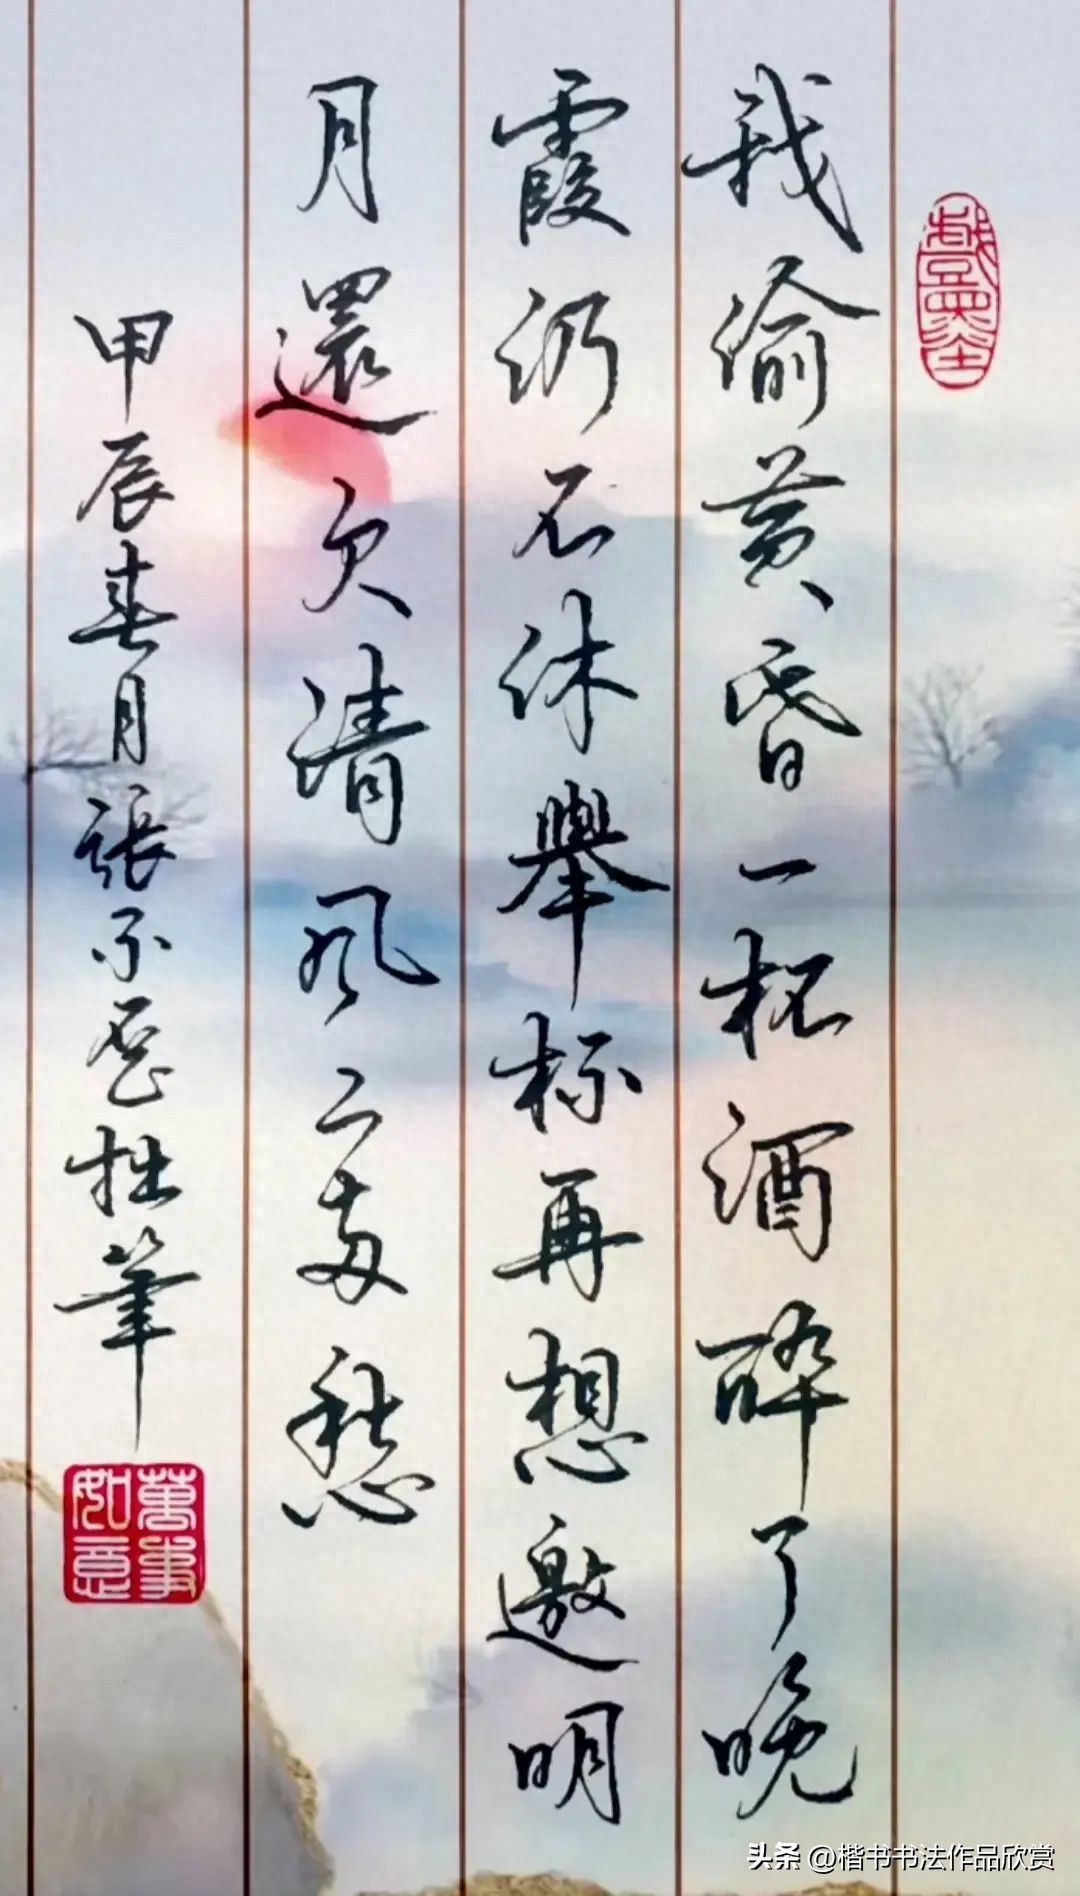 我偷黄昏一杯酒醉了晚
霞仍不休舉杯再想邀明
月還欠清風二两愁
甲辰春月張拙筆
萬事如意
头条 @楷书书法作品欣赏